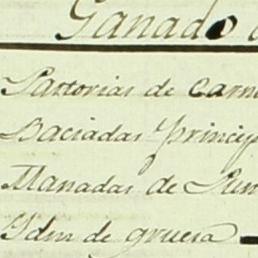 Ganado
Pastorias de Carn
Baciadas Princip
Manadas de Pun
Ydm de gruesa